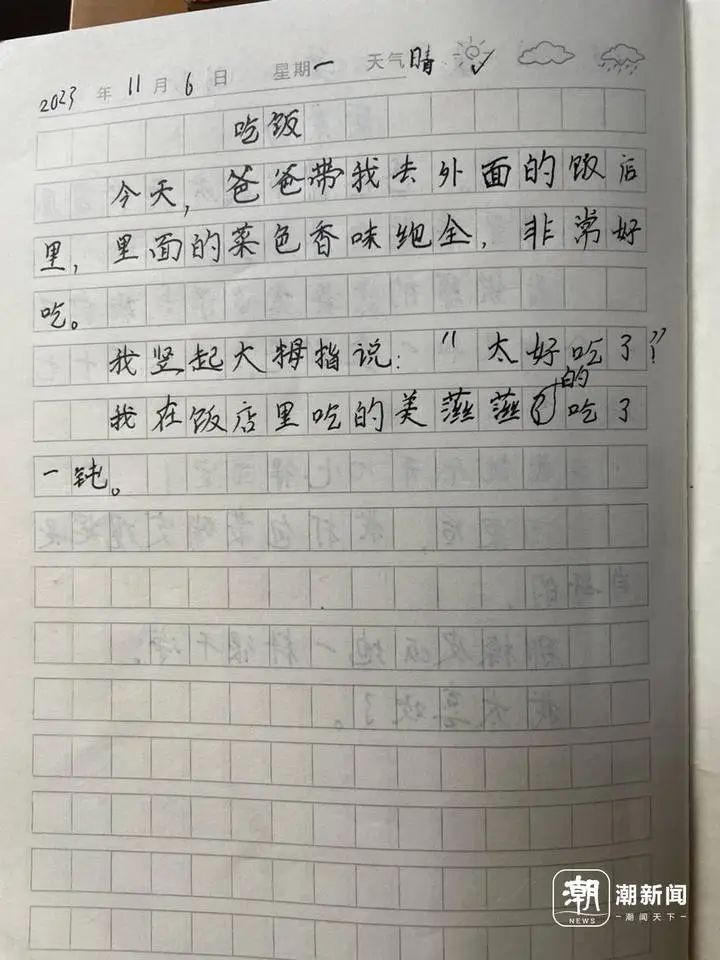 2023年11月6日 星期一 天气晴
吃饭
今天，爸爸带我去外面的饭后
里，里面的菜色香味绝全，非常好
吃。
我竖起大拇指说："太好吃了"！
的
我在饭店里吃的美燕燕吃了
一钝。
潮 NEWS 潮新闻
潮闻天下